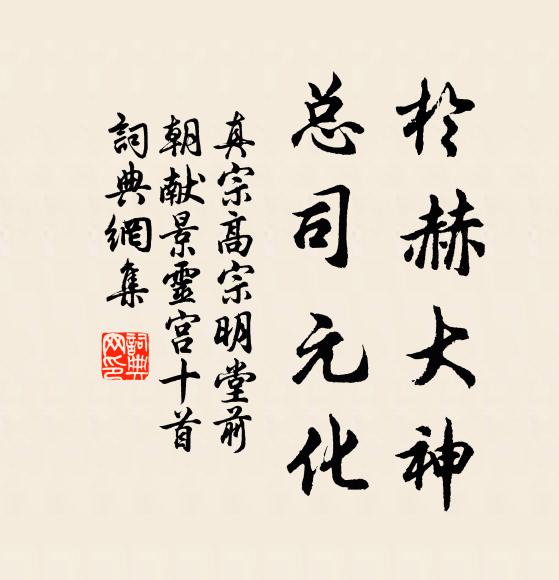 於赫大神
总司元化
真宗高宗明堂前
朝献景靈宫十首
詞典網集
詞典
网印